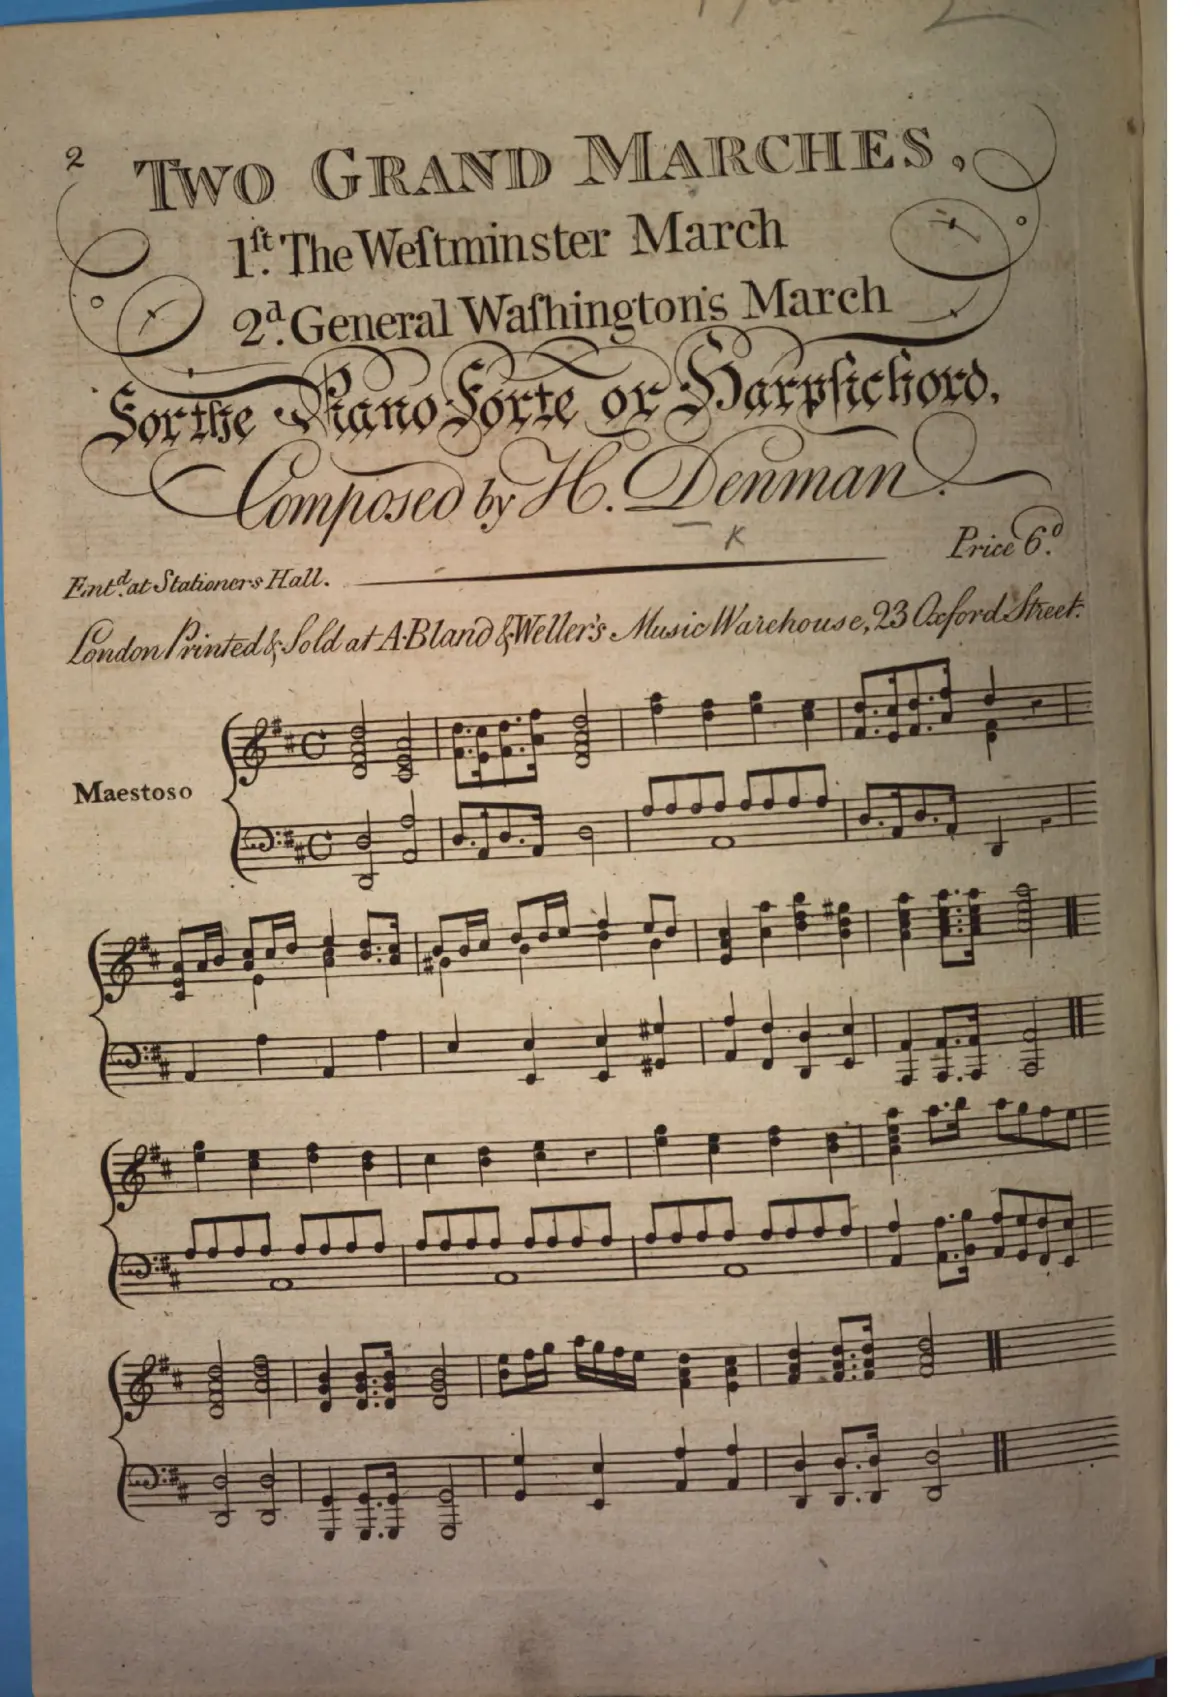 2
TWO GRAND MARCHES,
1ſt. The Weſtminster March
2d. General Waſhington's March
For the Piano Forte or Harpſichord,
Composed by H. Denman.
K
Price 6d.
Entd. at Stationers Hall.
London Printed & Sold at A. Bland & Weller's Music Warehouse, 23 Oxford Street.
Maestoso